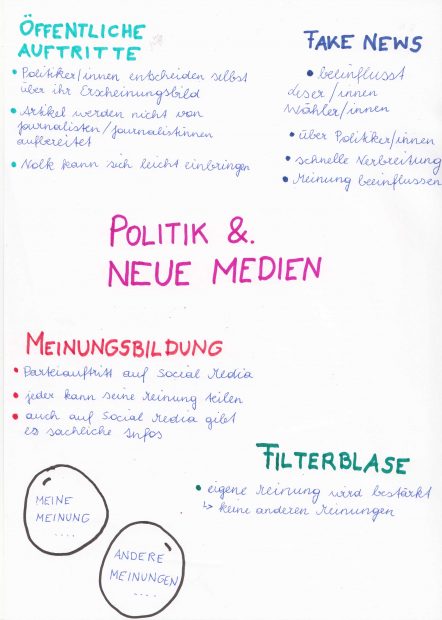 ÖFFENTLICHE
AUFTRITTE
• Politiker/innen entscheiden selbst
über ihr Erscheinungsbild
• Artikel werden nicht von
Journalisten/Journalistinnen
aufbereitet
• Volk kann sich leicht einbringen
FAKE NEWS
• beeinflusst
Leser/innen
Wähler/innen
• über Politiker/innen
• schnelle Verbreitung
• Meinung beeinflussen
POLITIK &.
NEUE MEDIEN
MEINUNGSBILDUNG
• Parteiauftritt auf Social Media
• jeder kann seine Meinung teilen
• auch auf Social Media gibt
es sachliche Infos
FILTERBLASE
• eigene Meinung wird bestärkt
↳ keine anderen Meinungen
MEINE
MEINUNG
....
ANDERE
MEINUNGEN
....